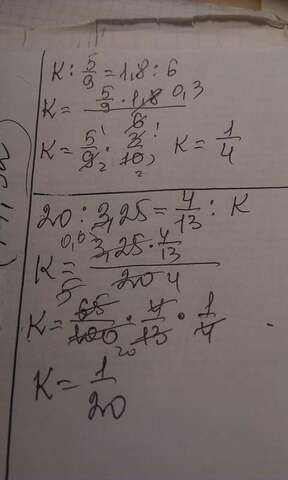 K : 5/9 = 1,8 : 6
K = (5/9 · 1,8 0,3)/6
K = 5 1/9 2 · 3 1/10 2 K = 1/4
20 : 3,25 = 4/13 : K
K = (3,25 · 4/13)/20 4
K = 65 5/100 20 · 4/13 · 1/4
K = 1/20